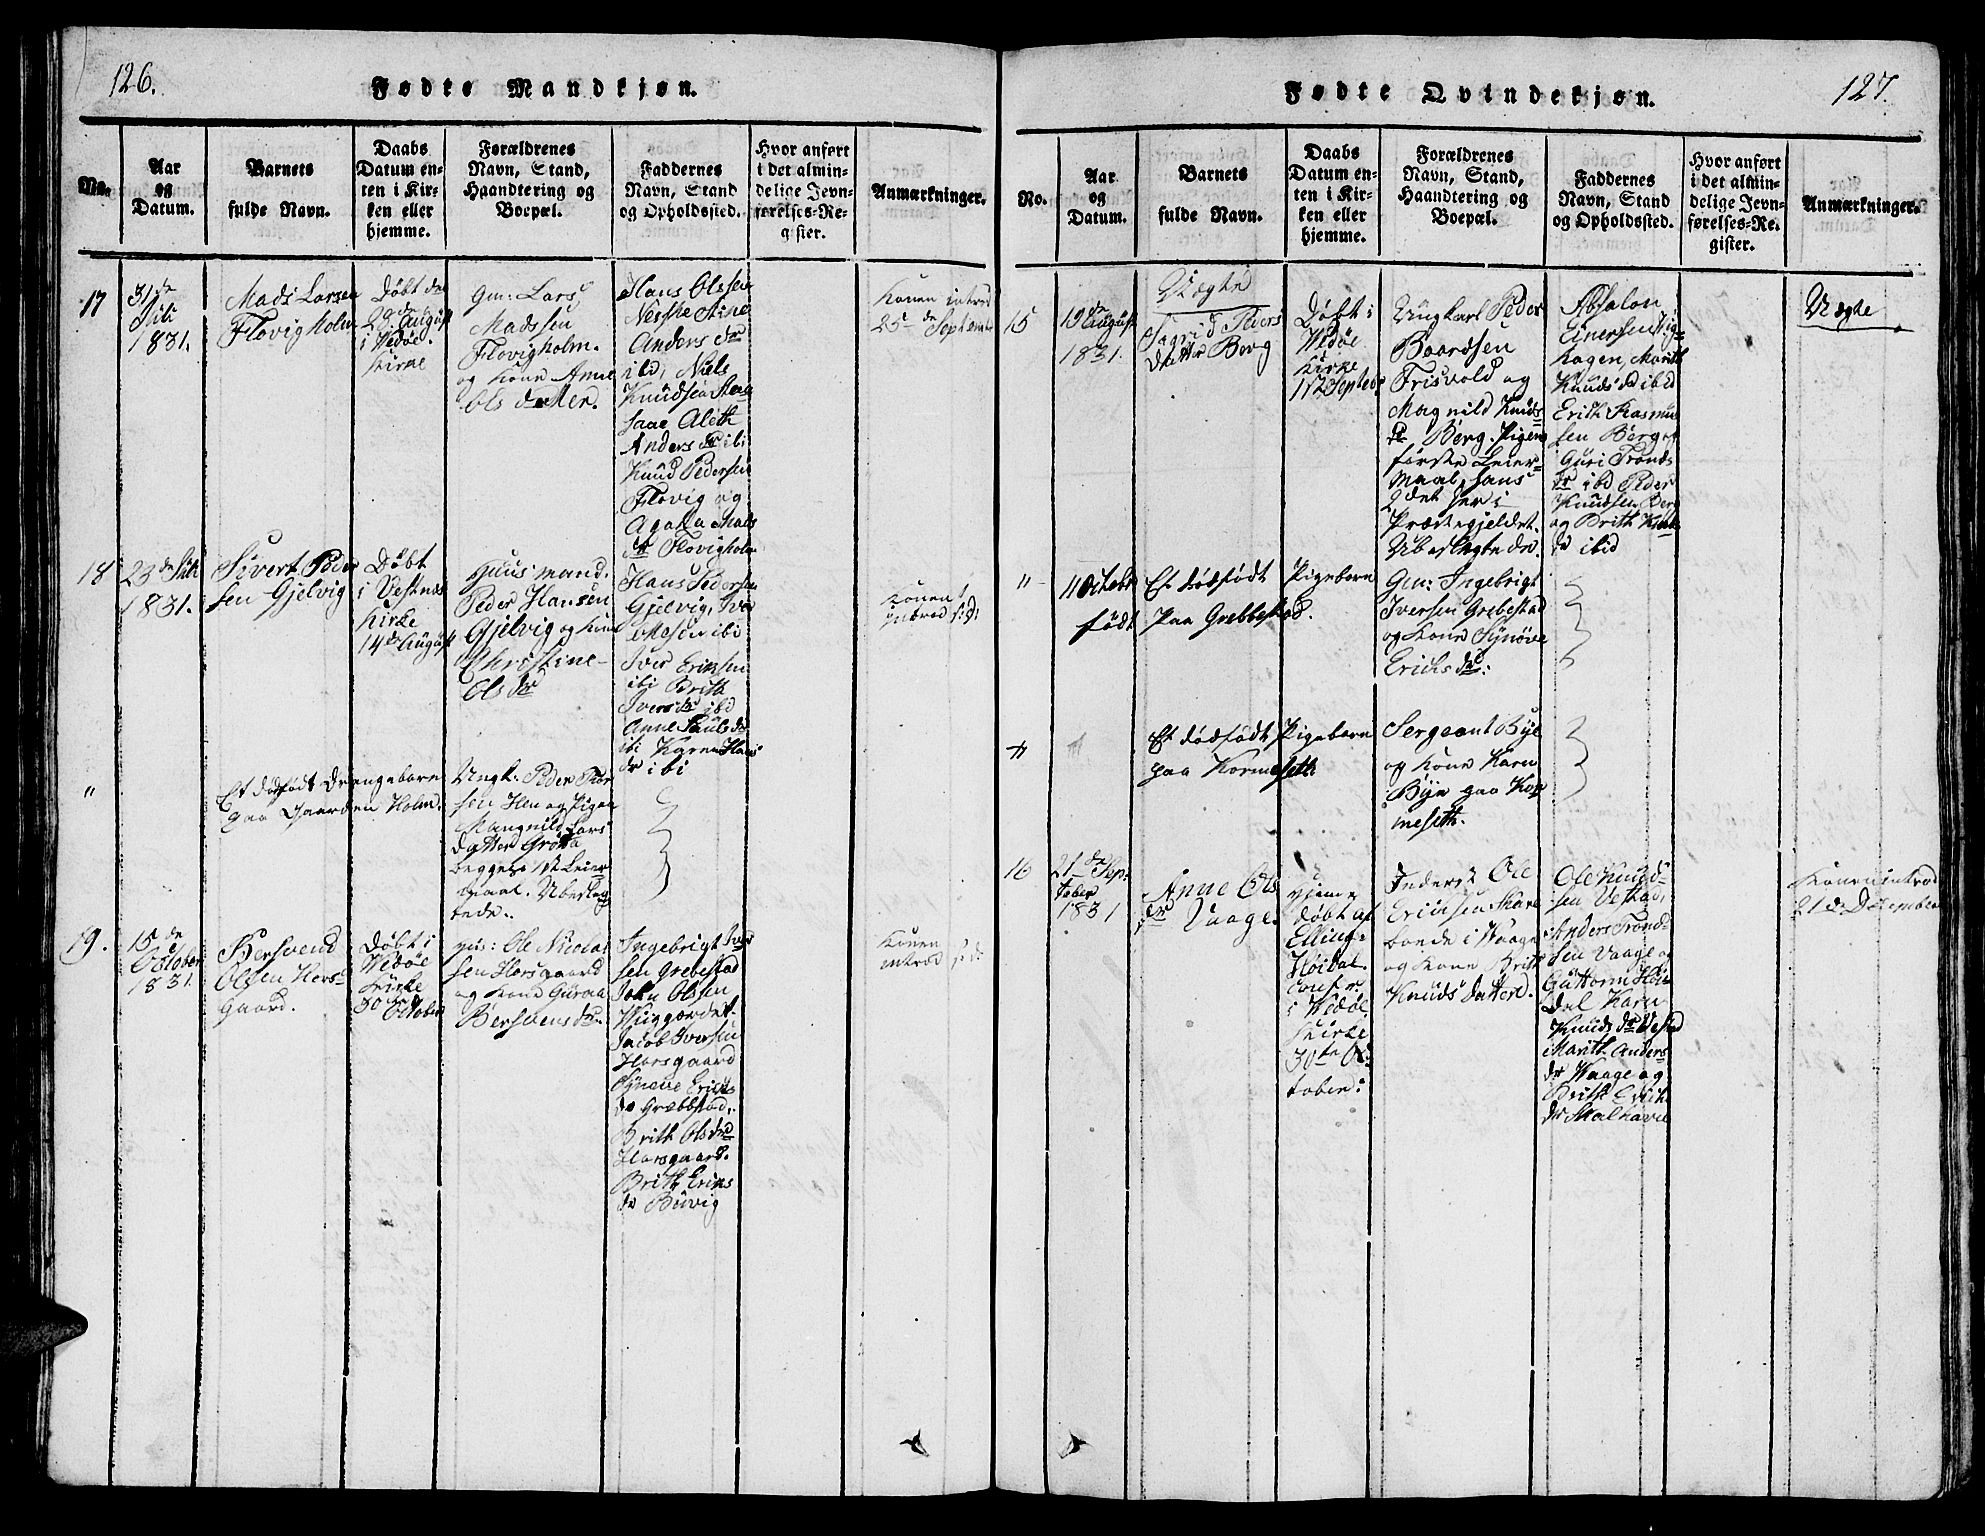 126.
Fødte Mandkjøn.
No.
Aar
og
Datum.
Barnets
fulde Navn.
Daabs
Datum en-
ten i Kir-
ken eller
hjemme.
Forældrenes
Navn, Stand,
Haandtering og
Boepæl.
Faddernes
Navn, Stand
og Opholdssted.
Hvor anført
i det almin-
delige Jevn-
førelses-Re-
gister.
Anmærkninger.
17
31 de
Juli
1831.
Mads Larsen
Flovigholm
Døbt den
28 de August
i Wedøe
Kirke
Gm: Lars
Madssen
Flovigholm.
og Kone Anne
Ols datter.
Hans Olssen
Anders dr
ibd, Niels
Knudsen
Aleth
Anders dr ibi
Knud Pedersen
Flovig og
Mads
dr Flovigholm
Konen introd
25 de September
18
23 de Juli
1831.
Sivert Peder
sen Gjelvig
Døbt
i Vestnes
Kirke
14 de August
Huusmand
Peder Hansen
Gjelvig og Kone
Christine
Ols dr
Hans Pedersen
Gjelvig, Iver
ibi
Iver Eriksen
ibi Brith
Ivers dr ibd
Anne Pauls dr
ibi Karen Hans
dr ibi
Konen
introd s: d:
"
Et dødfødt Drengebarn
paa Gaarden Holm.
Ungk: Peder
sen Hen og Pigen
Mangnild Lars
datter Grøtta
begges 1ste Leier
maal. Ubeslæg
tede.
19.
15 de
October
1831.
Bersvend
Olsen Hors-
gaard.
Døbt i
Wedøe
Kirke
30 te
October
Gm: Ole Nicolai
sen Horsgaard
og Kone Guroa
Bersvens dr.
Ingebrigt Iver
sen Grebestad
John Olssen
Jacob Iversen
Horsgaard
Synøve Erichs
dr Græbbstad,
Brith Ols dr
Horsgaard.
Brith Eriks
dr Buvig
Konen
introd s: d:
127.
Fødte Qvindekjøn.
No.
Aar
og
Datum.
Barnets
fulde Navn.
Daabs
Datum en-
ten i Kir-
ken eller
hjemme.
Forældrenes
Navn, Stand,
Haandtering og
Boepæl.
Faddernes
Navn, Stand
og Opholdssted.
Hvor anført
i det almin-
delige Jevn-
førelses-Re-
gister.
Anmærkninger.
15
19 de
August
1831.
Uægte
Sigrid Peders
datter Berg
Døbt i
Wedøe
Kirke
Ungkarl Peder
Baardsen
Frisvold og
Magnild Knuds
dr Berg. Pigens
første Leier-
maal, hans
2det her i
Præstegjeldet.
Ubeslægtede.
Absalon
Einersen
hagen, Marith
Knuds dr ibid
Erich Rasmus
sen Berg og
Guri Tronds
dr ibd Peder
Knudsen Berg
og Brith Knuds
dr ibid
Uægte
"
11 Octobr
født
Et dødfødt Pigebarn
paa Grebbestad.
Gm: Ingebrigt
Iversen Grebestad
og Kone Synøve
Erichs dr:
"
"
Et dødfødt Pigebarn
paa Kormeseth
Sergeant Bye
og Kone Karn
Bye paa Kor
meseth.
16
21 de Sep-
tober
1831
Anne Ols
dr Vaage.
Hjeme
døbt af
Elling
Høidal
i Wedøe
Kirke
30 te Oc
tober:
Inderst Ole
Ericksen Skare
boende i Waage
og Kone Brith
Knuds datter.
Ole Knud-
sen Vestad,
Anders Trond
sen Vaage og
Guttorm Høi
dal Karn
Knuds dr Vestad
Marith Anders
dr Waage og
Brith Erich
dr Skalhavn
Konen introd
21 de December